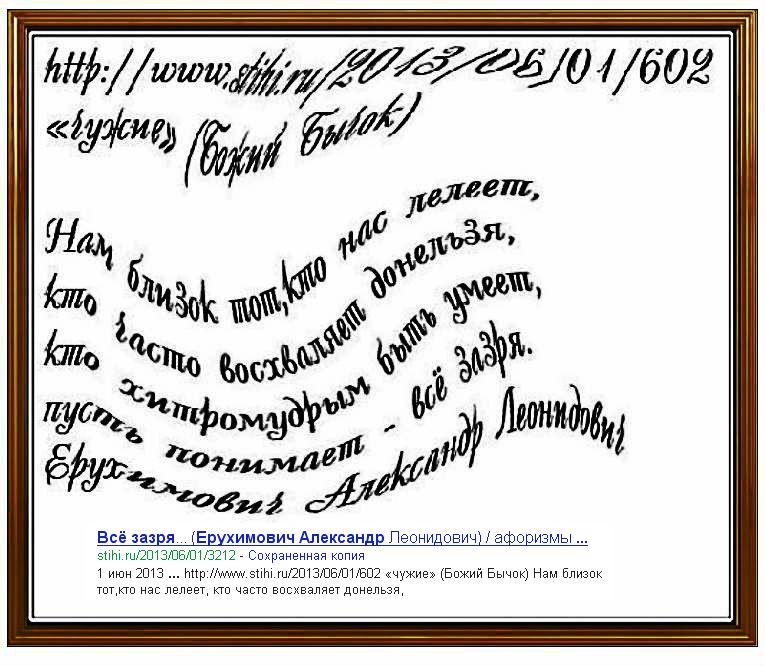 http://www.stihi.ru/2013/06/01/602
«чужие» (Божий Бычок)
Нам близок тот,кто нас лелеет,
кто часто восхваляет донельзя,
кто хитромудрым быть умеет,
пусть понимает - всё зазря.
Ерухимович Александр Леонидович
Всё зазря... (Ерухимович Александр Леонидович) / афоризмы ...
stihi.ru/2013/06/01/3212 - Сохраненная копия
1 июн 2013 ... http://www.stihi.ru/2013/06/01/602 «чужие» (Божий Бычок) Нам близок
тот,кто нас лелеет, кто часто восхваляет донельзя,